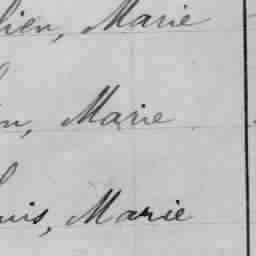 lien, Marie
n, Marie
uis, Marie